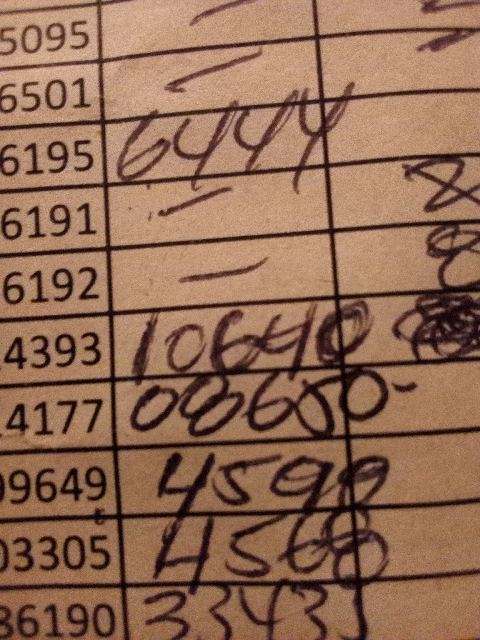 5095 -
6501 -
6195 6444
6191 - 8
6192 - 8
4393 10640
4177 08650-
09649 4599
03305 4560
86190